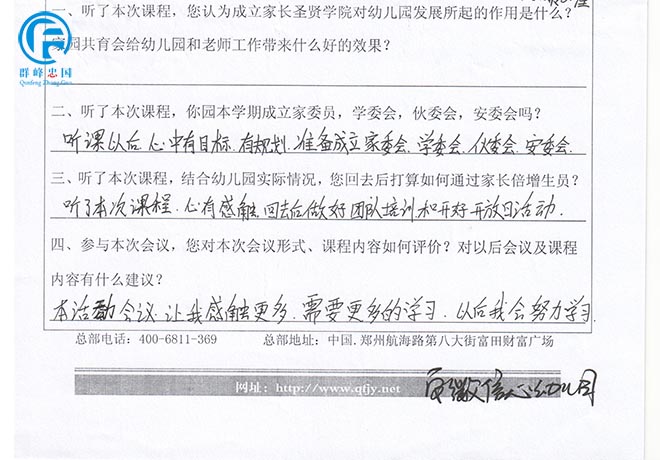 一、听了本次课程，您认为成立家长圣贤学院对幼儿园发展所起的作用是什么？
家园共育会给幼儿园和老师工作带来什么好的效果？
群峰忠国
Qunfeng Zhong Guo
二、听了本次课程，你园本学期成立家委员，学委会，伙委会，安委会吗？
听课以后心中有目标.有规划.准备成立家委会.学委会.伙委会.安委会.
三、听了本次课程，结合幼儿园实际情况，您回去后打算如何通过家长倍增生员？
听了本次课程.心有感触.回去后做好团队培训和开好开放日活动.
四、参与本次会议，您对本次会议形式、课程内容如何评价？对以后会议及课程
内容有什么建议？
本活动会议让我感触更多.需要更多的学习.以后我会努力学习.
总部电话：400-6811-369 总部地址：中国.郑州航海路第八大街富田财富广场
网址：http://www.qfjy.net
安徽信心幼儿园